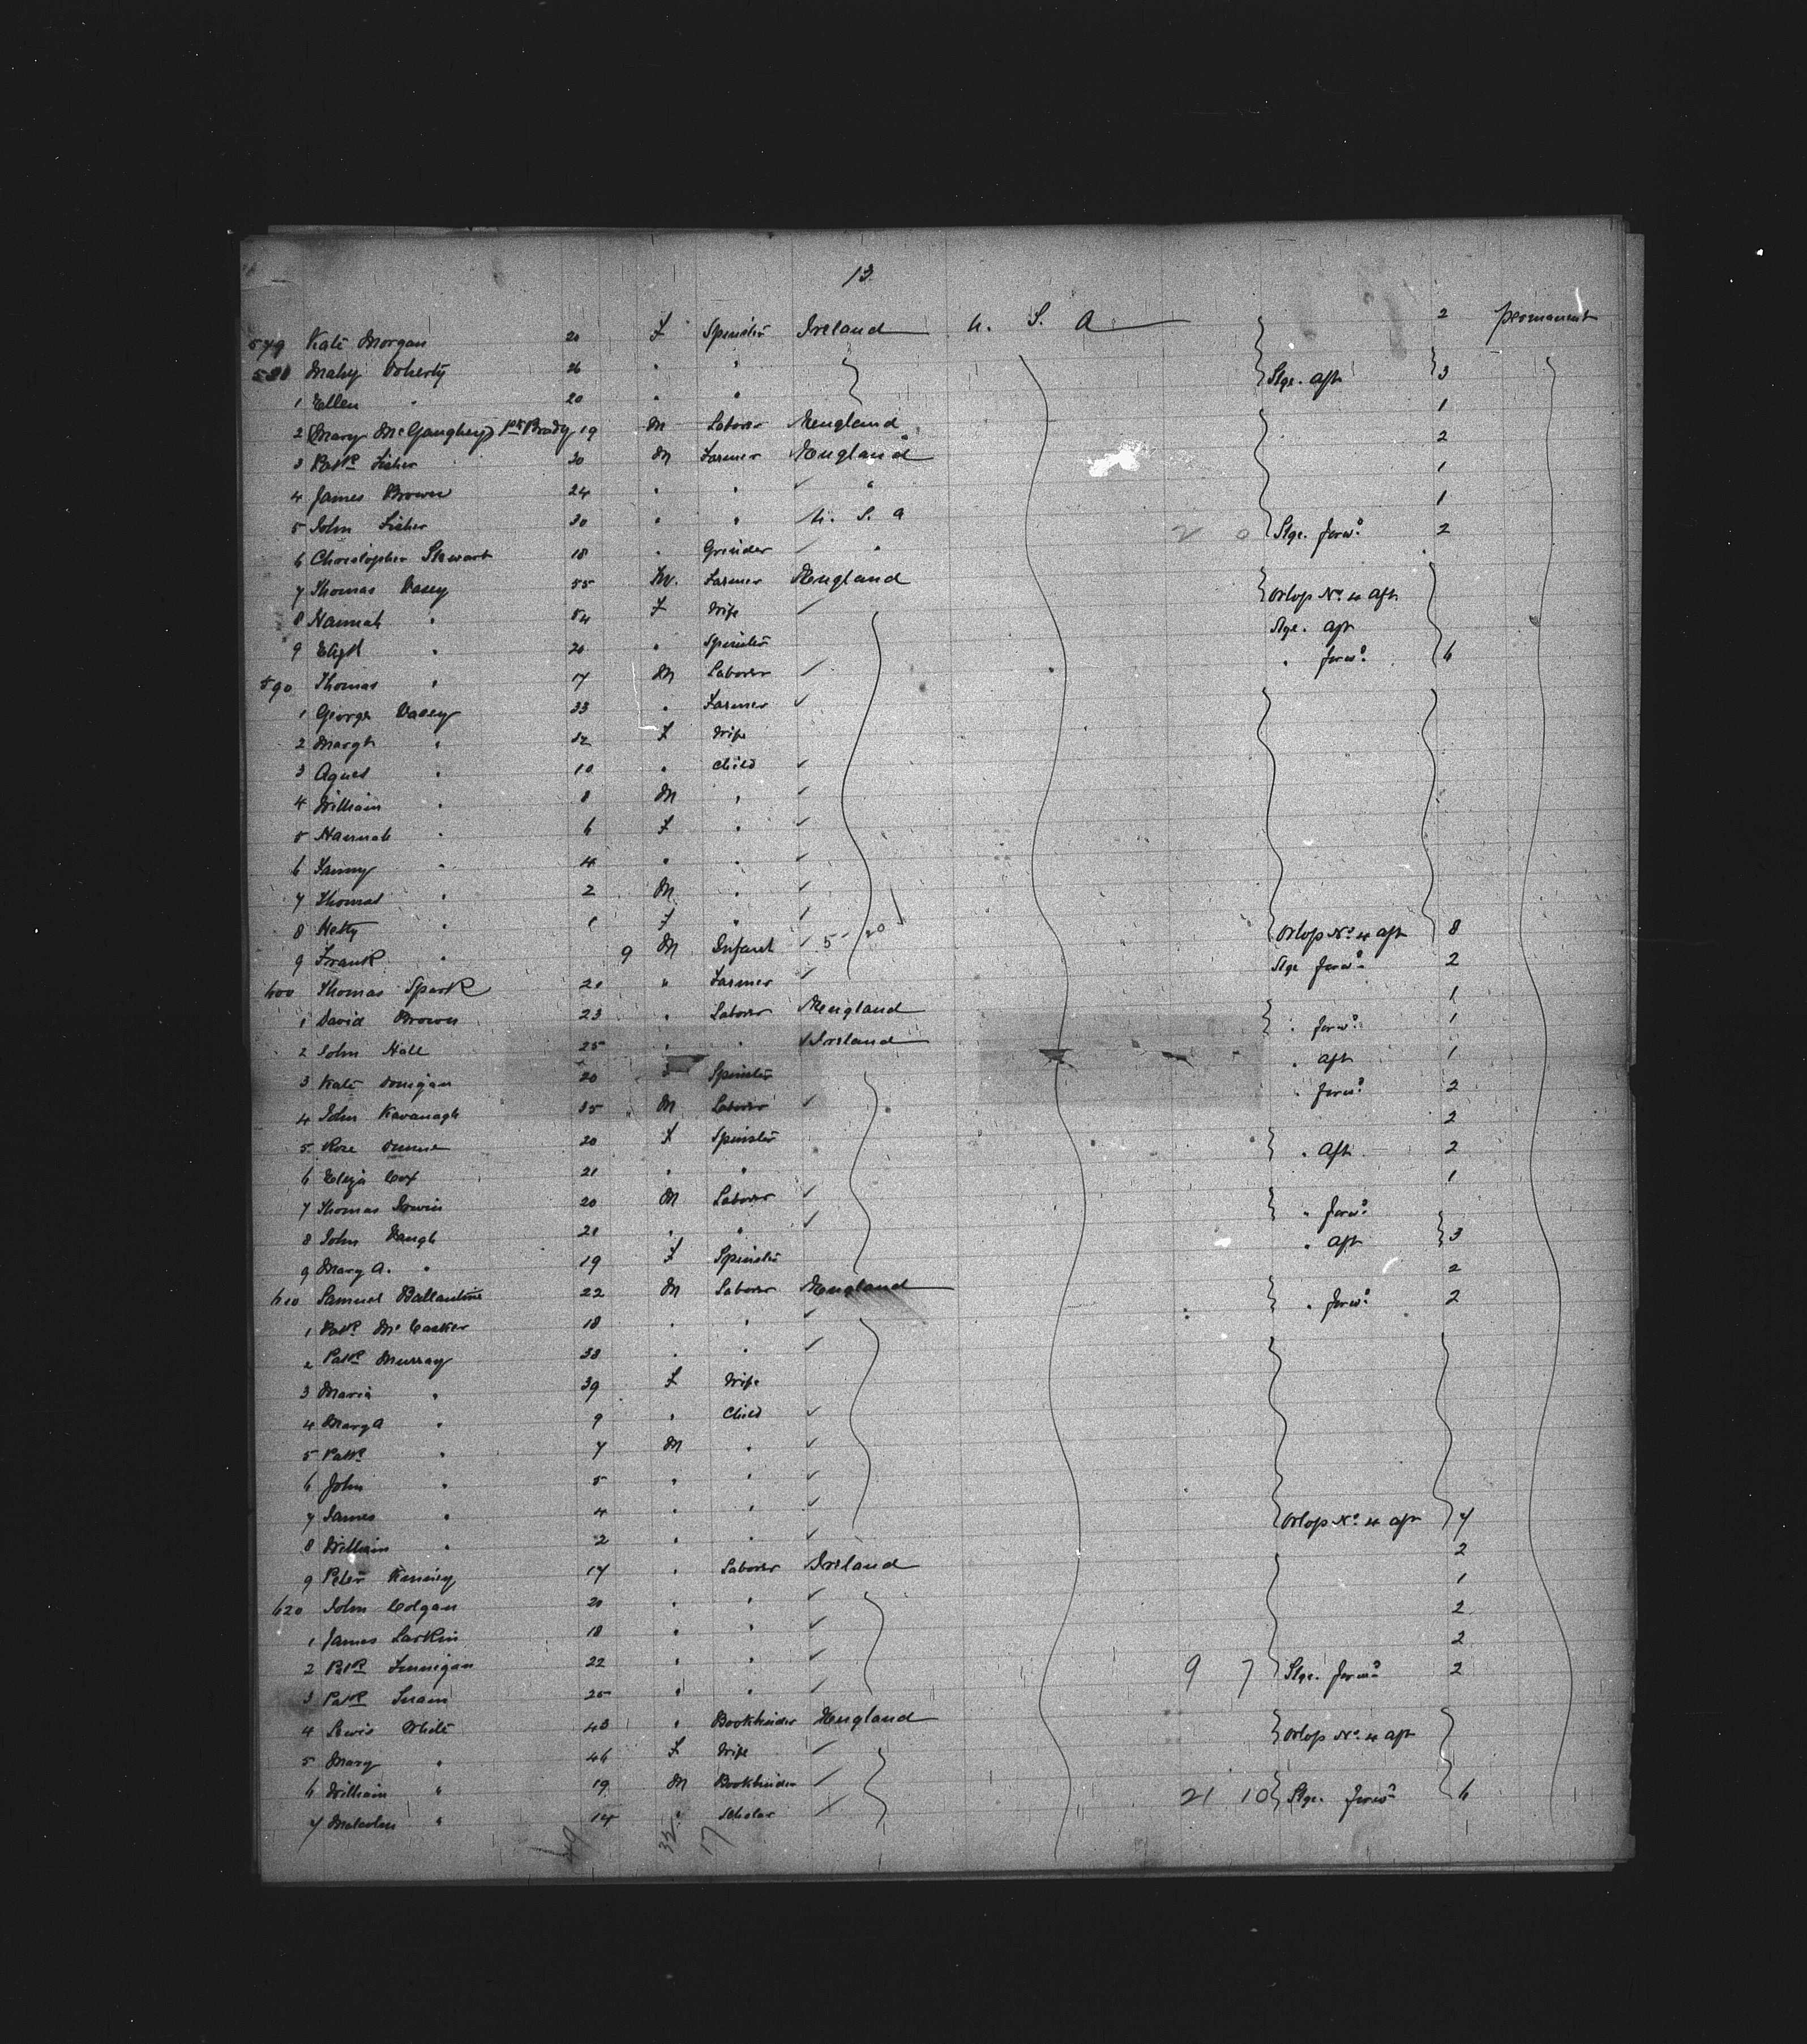 13
579 Kate Morgan 20 F Spinster Ireland U. S. A 2 permanent
580 Mary Doherty 26 " " Stge. Aft 3
1 Ellen " 20 " " 1
2 (Mary McGaughey) Pk Brady 19 M Laborer England 2
3 Patk Fisher 20 M Farmer England 1
4 James Brown 24 " " ✓ " 1
5 John Fisher 30 " " U. S. A 2 0 Stge. forwd 2
6 Christopher Stewart 18 " Grinder ✓ "
7 Thomas Vasey 55 M. Farmer England Orlop No 4 Aft
8 Hannah " 54 F Wife ✓ Stge. Aft
9 Elizth " 20 " Spinster " forwd 6
590 Thomas " 17 M Laborer ✓
1 George Vasey 33 " Farmer ✓
2 Margt " 32 F Wife
3 Agnes " 10 " Child ✓
4 William " 8 M " ✓
5 Hannah " 6 F " ✓
6 Fanny " 4 " " ✓
7 Thomas " 2 M " ✓
8 Hetty " 1 F " ✓ Orlop No 4 Aft 8
9 Frank " 9 M Infant ✓ Stge forwd 2
600 Thomas Spark 21 " Farmer ✓ 1
1 David Brown 23 " Laborer England " forwd 1
2 John Hall 25 " " ✓ Ireland " Aft 1
3 Kate Donigan 20 F Spinster " forwd 2
4 John Kavanagh 35 M Laborer ✓ 2
5 Rose Dunne 20 F Spinster " Aft 2
6 Eliza Cox 21 " " 1
7 Thomas Irwin 20 M Laborer ✓ " forwd
8 John Waugh 21 " " ✓ " Aft 3
9 Mary A. " 19 F Spinster 2
610 Samuel Ballantine 22 M Laborer England " forwd 2
1 Patk McCasker 18 " " ✓
2 Patk Murray 38 " " ✓
3 Maria " 39 F Wife
4 Mary A " 9 " Child ✓
5 Patk " 7 M " ✓
6 John " 5 " " ✓
7 James " 4 " " ✓ Orlop No 4 Aft 7
8 William " 2 " " ✓ 2
9 Peter Kenny 17 " Laborer Ireland 1
620 John Colgan 20 " " ✓ 2
1 James Larkin 18 " " ✓ 2
2 Patk Finnigan 22 " " ✓ 9 7 Stge. forwd 2
3 Patk 25 " " ✓
4 Lewis White 43 " Bookbinder England Orlop No 4 Aft
5 Mary " 46 F Wife ✓
6 William " 19 M Bookbinder ✓ 21 10 Stge. forwd 6
7 Malcolm " 14 " Scholar ✓
49 32 17